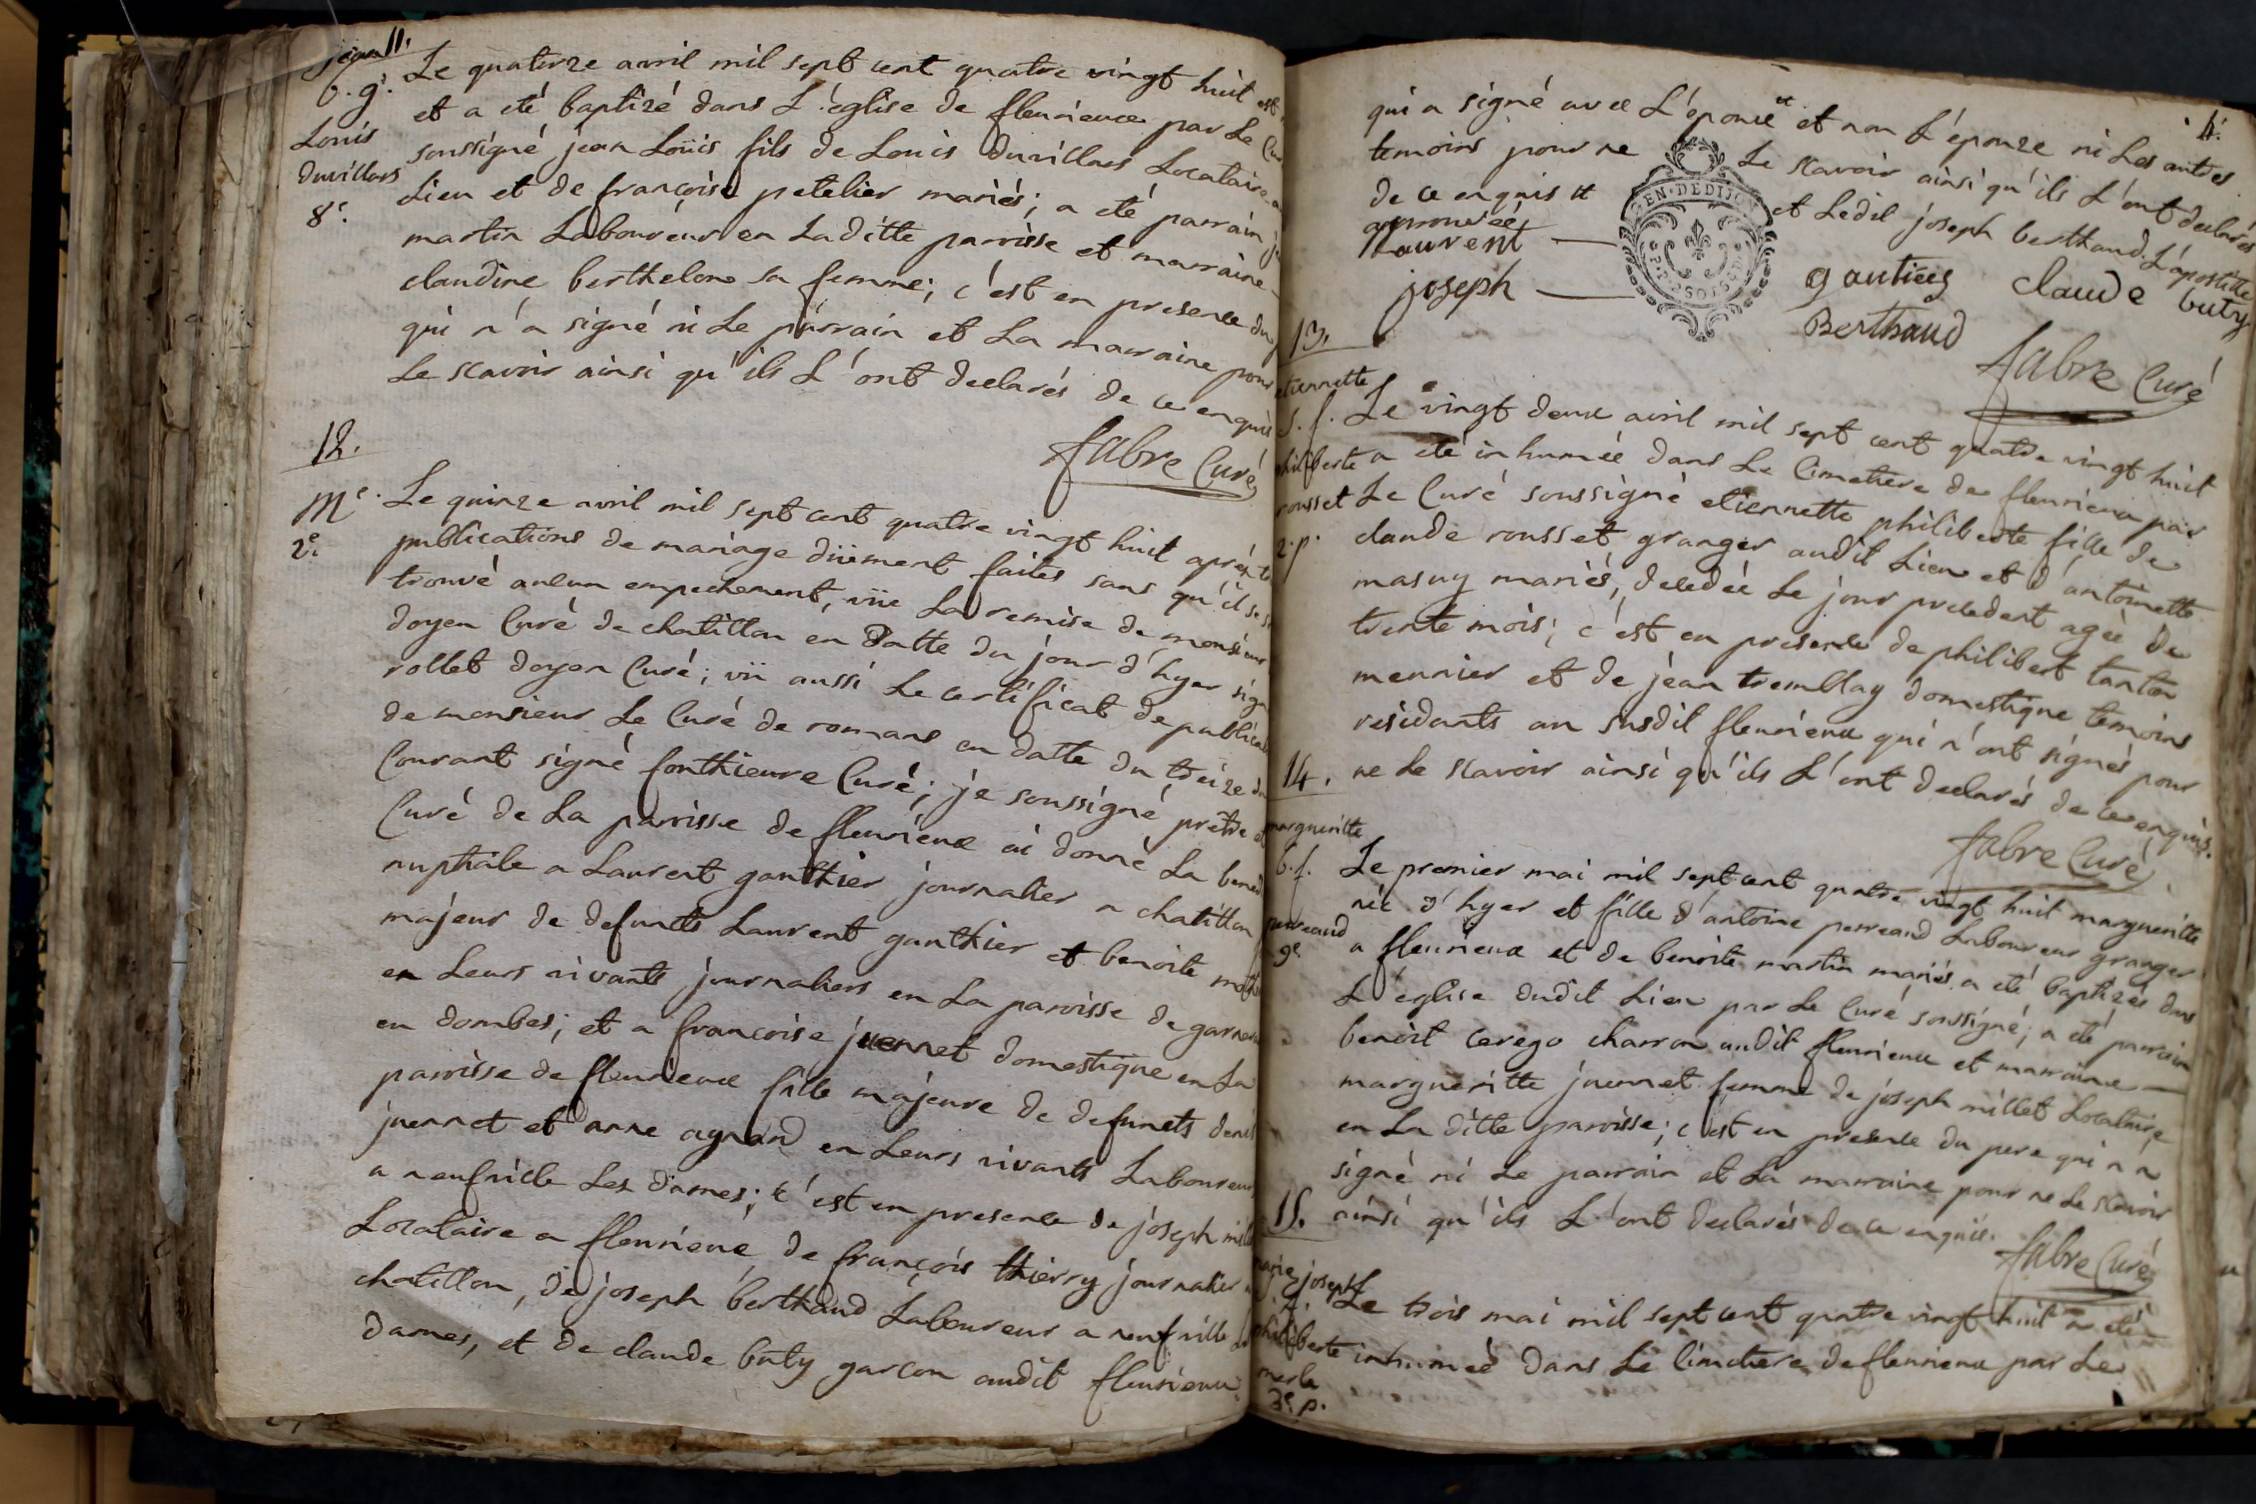 jean 11.
b. g. Le quatorze avril mil sept cent quatre vingt huit est
et a eté baptizé dans L'église de fleurieux par Le Cu
Louis soussigné jean Loüis fils de Louis duvillars Locataire
duvillars Lieu et de françoise petelier mariés; a eté parrain
8e. martin Laboureur en La ditte parrisse et marraine
claudine berthelon sa femme; c'est en presence du
qui n'a signé ni Le parrain et La marraine pour
Le scavoir ainsi qu'ils L'ont declarés de ce enquis
fabre Curé
12.
Me. Le quinze avril mil sept cent quatre vingt huit aprés
2e. publications de mariage düement faites sans qu'il se
trouvé aulun empechement, vüe La remise de monsieur
doyen Curé de chatillon en datte du jour d'hyer sign
rollet doyen Curé; vü aussi Le certificat de publica
de monsieur Le Curé de romans en datte du treize du
Courant signé fonthieure Curé; je soussigné prêtre et
Curé de La parrisse de fleurieux ai donné La bened
nuptiale a Laurent gauthier journalier a chatillon
majeur de defuncts Laurent gauthier et benoite
en Leurs vivants journaliers en La paroisse de
en dombes; et a francoise juennet domestique en La
parrisse de fleurieux fille majeure de defuncts
juennet et anne agnand en Leurs vivants Laboureurs
a neufville Les dames; c'est en presence de joseph
Locataire a fleurieux, de françois thierry journalier
chatillon, de joseph berthaud Laboureur a neufville
dames, et de claude buty garcon audit fleurieux
4.
qui a signé avec L'épouxe et non L'épouze ni Les autres
temoins pour ne Le scavoir ainsi qu'ils L'ont declarés
de ce enquis et et Ledit joseph berthaud. L'apostille
aprouvée
Laurent — gautiés claude buty
joseph — Berthaud
fabre Curé
GEN·DE DIJON
13.
etiennette
S. f. Le vingt deux avril mil sept cent quatre vingt huit
philiberte a eté inhumée dans Le Cimetiere de fleurieux par
rousset Le Curé soussigné etiennette philiberte fille de
2. p. claude rousset granger audit Lieu et d'antoinette
masuy mariés, decedée Le jour precedent agée de
trente mois; c'est en presence de philibert tanton
meunier et de jean tremblay domestique temoins
residants au susdit fleurieux qui n'ont signés pour
ne Le scavoir ainsi qu'ils L'ont declarés de ce enquis.
fabre Curé
14.
margueritte
b. f. Le premier mai mil sept cent quatre vingt huit margueritte
née d'hyer et fille d'antoine perreaud Laboureur granger
perreaud a fleurieux et de benoite martin mariés a eté baptizés dans
9e. L'église dudit Lieu par Le Curé soussigné; a eté parrain
benoit cerego charron audit fleurieux et marraine —
margueritte juennet femme de joseph millet Locataire
en La ditte parrisse; c'est en presence du pere qui n'a
signé ni Le parrain et La marraine pour ne Le scavoir
ainsi qu'ils L'ont declarés de ce enquis.
fabre Curé
15.
marie joseph
Le trois mai mil sept cent quatre vingt huit a eté
philiberte inhumée dans Le Cimetiere de fleurieux par Le
merle
3e. p.